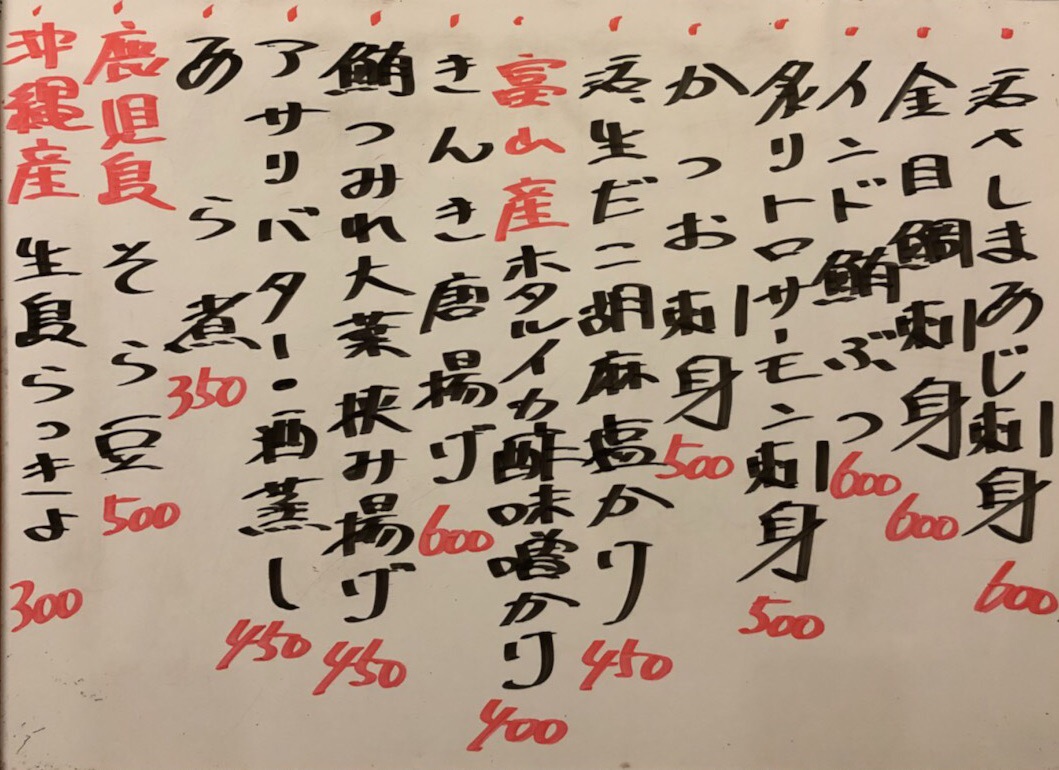 活〆しまあじ刺身 600
金目鯛刺身 600
インド鮪ぶつ 600
炙りトロサーモン刺身 500
かつお刺身 500
活、生だこ胡麻塩かけ 450
富山産ホタルイカ酢味噌かけ 400
きんき唐揚げ 600
鮪つみれ大葉挟み揚げ 450
アサリバター・酒蒸し 450
あら煮 350
鹿児島そら豆 500
沖縄産生島らっきょ 300